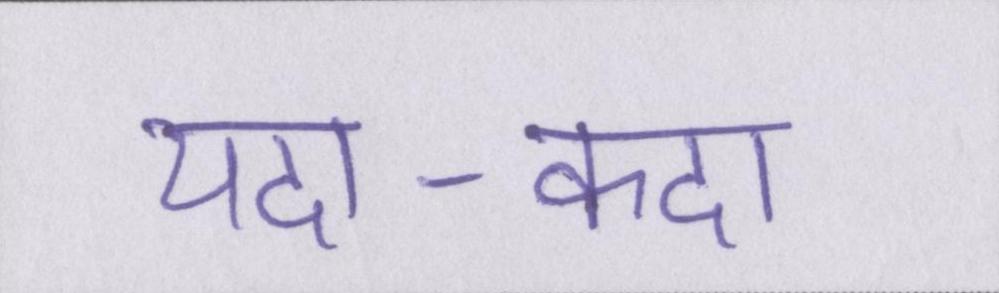 यदा-कदा